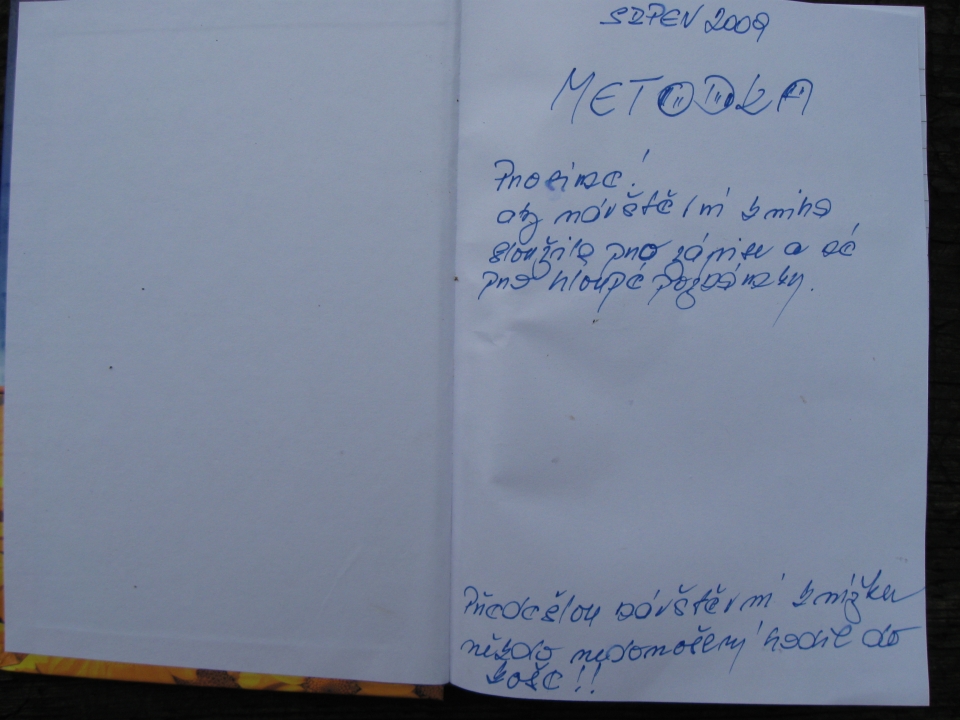 SRPEN 2009
METODKA
Prosíme!
aby návštěvní kniha
sloužila pro zápisy a né
pro hloupé poznámky.
Předešlou návštěvní knížku
někdo nedonošený hodil do
koše!!